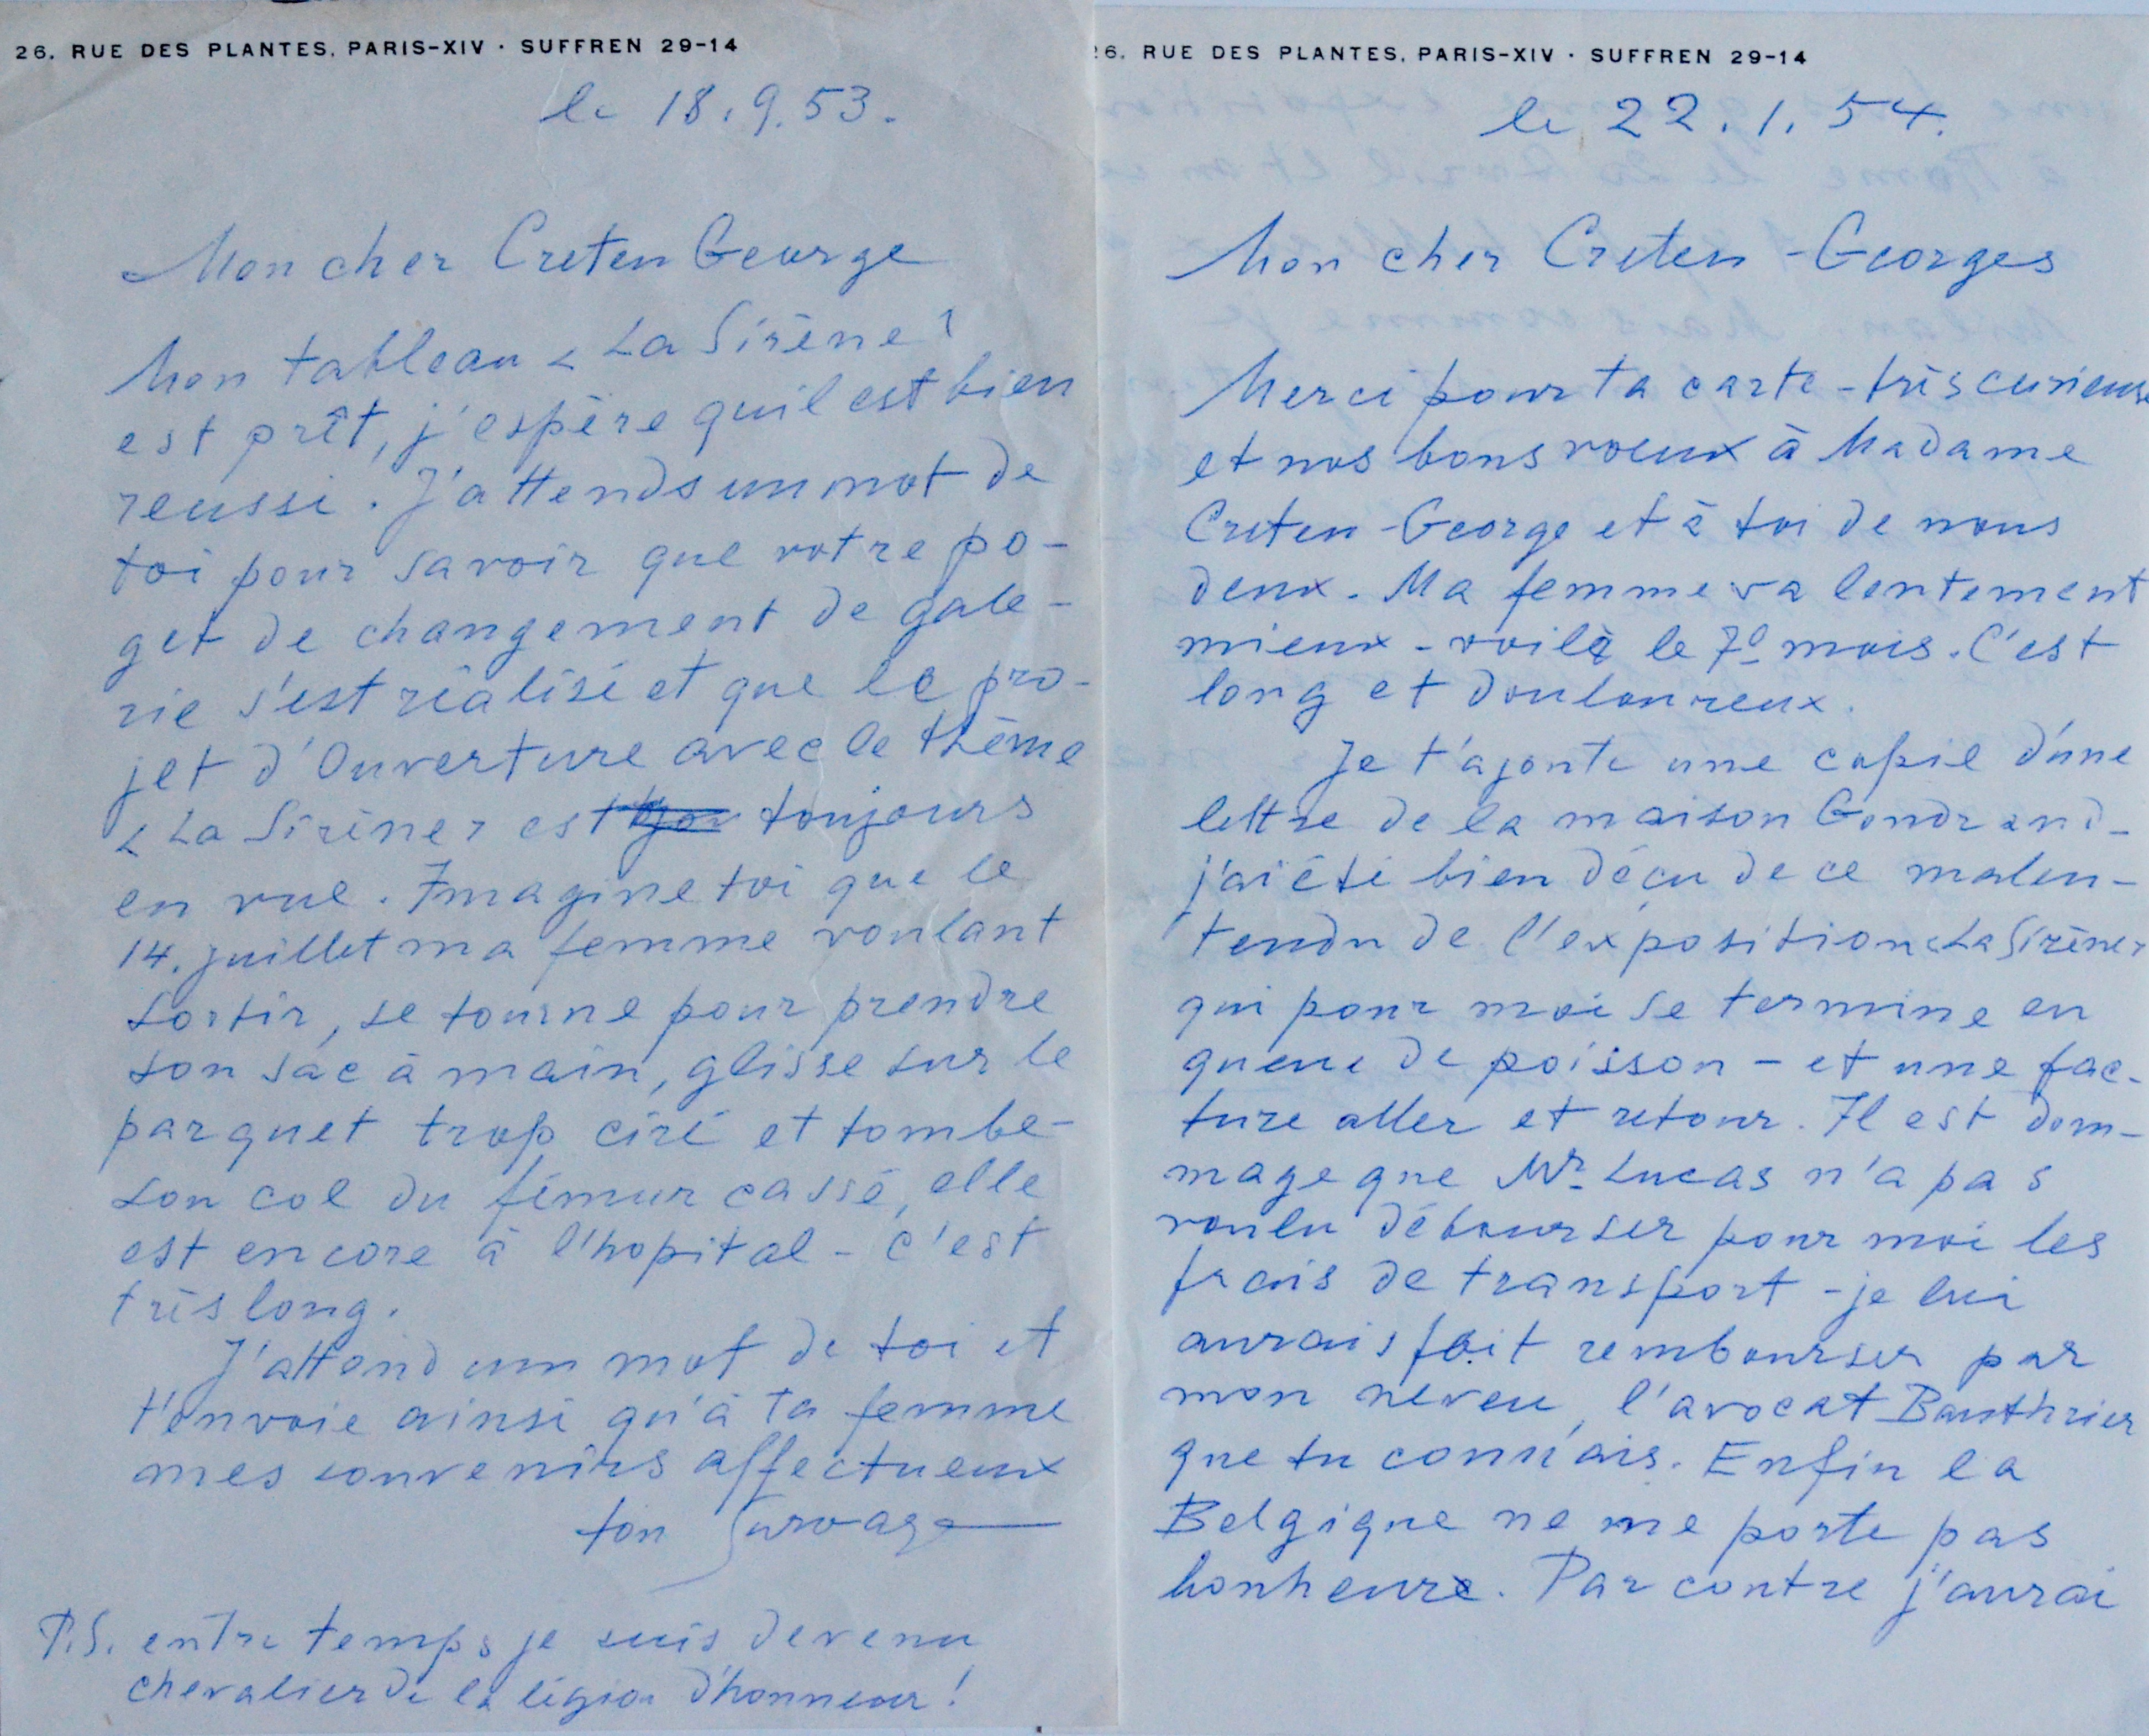 26, RUE DES PLANTES, PARIS-XIV · SUFFREN 29-14
le 18.9.53.
Mon cher Creten George
Mon tableau < La Sirène >
est prêt, j'espère quil est bien
reussi. J'attends un mot de
toi pour savoir que votre po-
get de changement de gale-
rie s'est réalisé et que le pro-
jet d'Ouverture avec le thème
< La Sirène > est toujours
en vue. Imagine toi que le
14. juillet ma femme voulant
sortir, se tourne pour prendre
son sac à main, glisse sur le
parquet trop ciré et tombe-
son col du fémur cassé, elle
est encore à l'hopital - c'est
très long.
J'attend un mot de toi et
t'envoie ainsi qu'à ta femme
mes souvenirs affectueux
ton Survage
P.S. entre temps je suis devenu
chevalier de la légion d'honneur!
26, RUE DES PLANTES, PARIS-XIV · SUFFREN 29-14
le 22.1.54.
Mon cher Creten-Georges
Merci pour ta carte - très curieuse
et nos bons voeux à Madame
Creten-George et à toi de nous
deux. Ma femme va lentement
mieux - voilà le 7e mois. C'est
long et douloureux.
Je t'ajoute une copie d'une
lettre de la maison Gondrand-
j'ai été bien déçu de ce malen-
tendu de l'exposition < La Sirène >
qui pour moi se termine en
queue de poisson - et une fac-
ture aller et retour. Il est dom-
mage que Mr Lucas n'a pas
voulu débourser pour moi les
frais de transport - je lui
aurais fait rembourser par
mon neveu, l'avocat Bauthier
que tu connais. Enfin la
Belgique ne me porte pas
bonheure. Par contre j'aurai